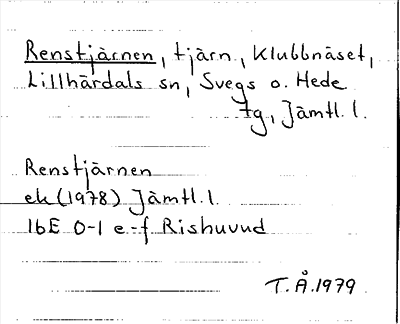 Renstjärnen, tjärn, Klubbnäset,
Lillhärdals sn, Svegs o. Hede
tg, Jämtl. l.
Renstjärnen
ek (1978) Jämtl. l.
16E 0-1 e-f Rishuvud
T.Å. 1979